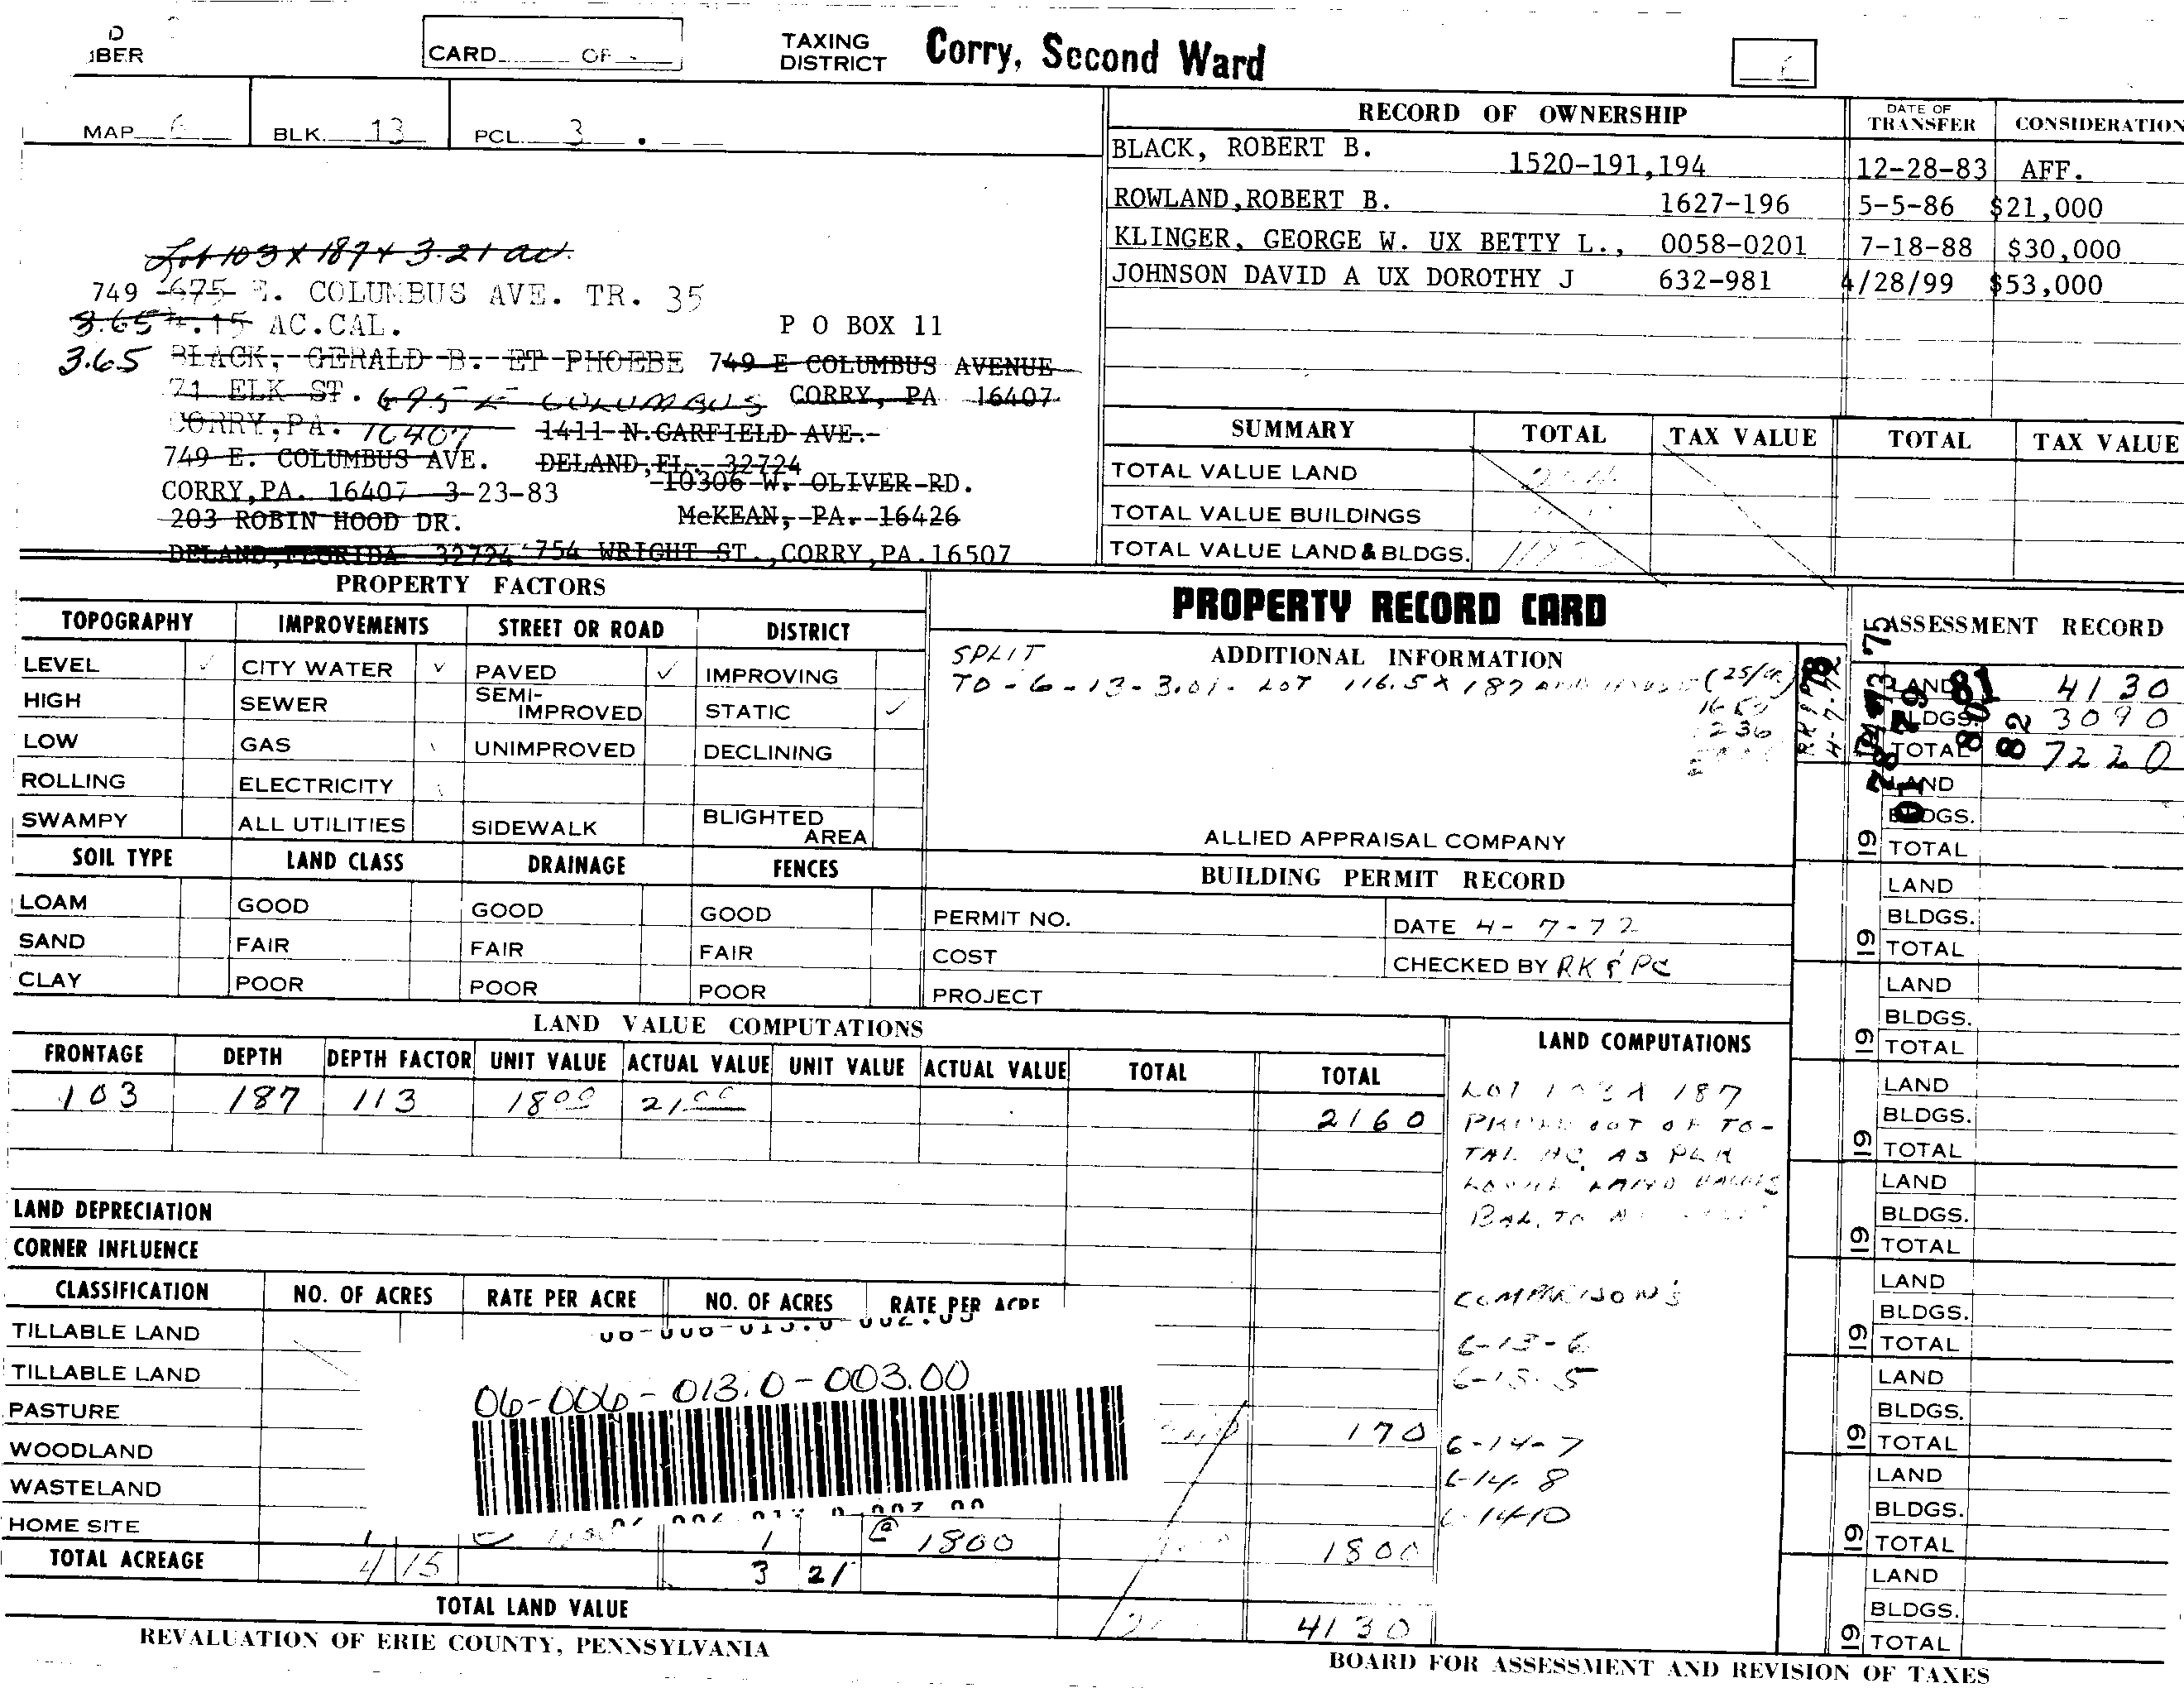 BER
CARD OF
TAXING DISTRICT Corry, Second Ward
MAP 6 BLK. 13 PCL. 3 .
RECORD OF OWNERSHIP DATE OF TRANSFER CONSIDERATION
BLACK, ROBERT B. 1520-191,194 12-28-83 AFF.
ROWLAND,ROBERT B. 1627-196 5-5-86 $21,000
KLINGER, GEORGE W. UX BETTY L., 0058-0201 7-18-88 $30,000
JOHNSON DAVID A UX DOROTHY J 632-981 4/28/99 $53,000
Lot 103 X 187 + 3.21 ac.
749 675 E. COLUMBUS AVE. TR. 35
3.65 4.15 AC.CAL.
P O BOX 11
3.65 BLACK, GERALD B. ET PHOEBE
749 E COLUMBUS AVENUE
71 ELK ST. 675 E COLUMBUS
CORRY, PA 16407
CORRY,PA. 16407
1411 N.GARFIELD AVE.
749 E. COLUMBUS AVE.
DELAND,FL. 32724
CORRY,PA. 16407 3-23-83
10306 W. OLIVER RD.
203 ROBIN HOOD DR.
McKEAN, PA. 16426
DELAND,FLORIDA 32724
754 WRIGHT ST.,CORRY,PA.16507
SUMMARY TOTAL TAX VALUE TOTAL TAX VALUE
TOTAL VALUE LAND
TOTAL VALUE BUILDINGS
TOTAL VALUE LAND & BLDGS.
PROPERTY FACTORS
TOPOGRAPHY IMPROVEMENTS STREET OR ROAD DISTRICT
LEVEL ✓ CITY WATER ✓ PAVED ✓ IMPROVING
HIGH SEWER SEMI-IMPROVED STATIC ✓
LOW GAS UNIMPROVED DECLINING
ROLLING ELECTRICITY
SWAMPY ALL UTILITIES SIDEWALK BLIGHTED AREA
SOIL TYPE LAND CLASS DRAINAGE FENCES
LOAM GOOD GOOD GOOD
SAND FAIR FAIR FAIR
CLAY POOR POOR POOR
PROPERTY RECORD CARD
SPLIT ADDITIONAL INFORMATION
TO - 6 - 13 - 3.01 - LOT 116.5 X 187
4-7-72
ALLIED APPRAISAL COMPANY
BUILDING PERMIT RECORD
PERMIT NO. DATE 4-7-72
COST CHECKED BY RK & PC
PROJECT
ASSESSMENT RECORD
75 78 79 80 81 82
LAND 4130
BLDGS. 3090
TOTAL 7220
LAND
BLDGS.
19 TOTAL
LAND
BLDGS.
19 TOTAL
LAND
BLDGS.
19 TOTAL
LAND
BLDGS.
19 TOTAL
LAND
BLDGS.
19 TOTAL
LAND
BLDGS.
19 TOTAL
LAND
BLDGS.
19 TOTAL
LAND
BLDGS.
19 TOTAL
LAND
BLDGS.
19 TOTAL
LAND VALUE COMPUTATIONS
FRONTAGE DEPTH DEPTH FACTOR UNIT VALUE ACTUAL VALUE UNIT VALUE ACTUAL VALUE TOTAL TOTAL
103 187 113 1800 2100 2160
LAND DEPRECIATION
CORNER INFLUENCE
LAND COMPUTATIONS
LOT 103 X 187
OUT OF TO-
TAL AC. AS PER
LAND VALUES
BAL. TO
COMPARISONS
6-13-6
6-13-5
6-14-7
6-14-8
6-14-10
CLASSIFICATION NO. OF ACRES RATE PER ACRE NO. OF ACRES RATE PER ACRE
TILLABLE LAND
TILLABLE LAND
PASTURE
WOODLAND 170
WASTELAND
HOME SITE 1 1 @ 1800 1800
06-006-013.0-003.00
TOTAL ACREAGE 4 15 3 21
TOTAL LAND VALUE 4130
REVALUATION OF ERIE COUNTY, PENNSYLVANIA
BOARD FOR ASSESSMENT AND REVISION OF TAXES